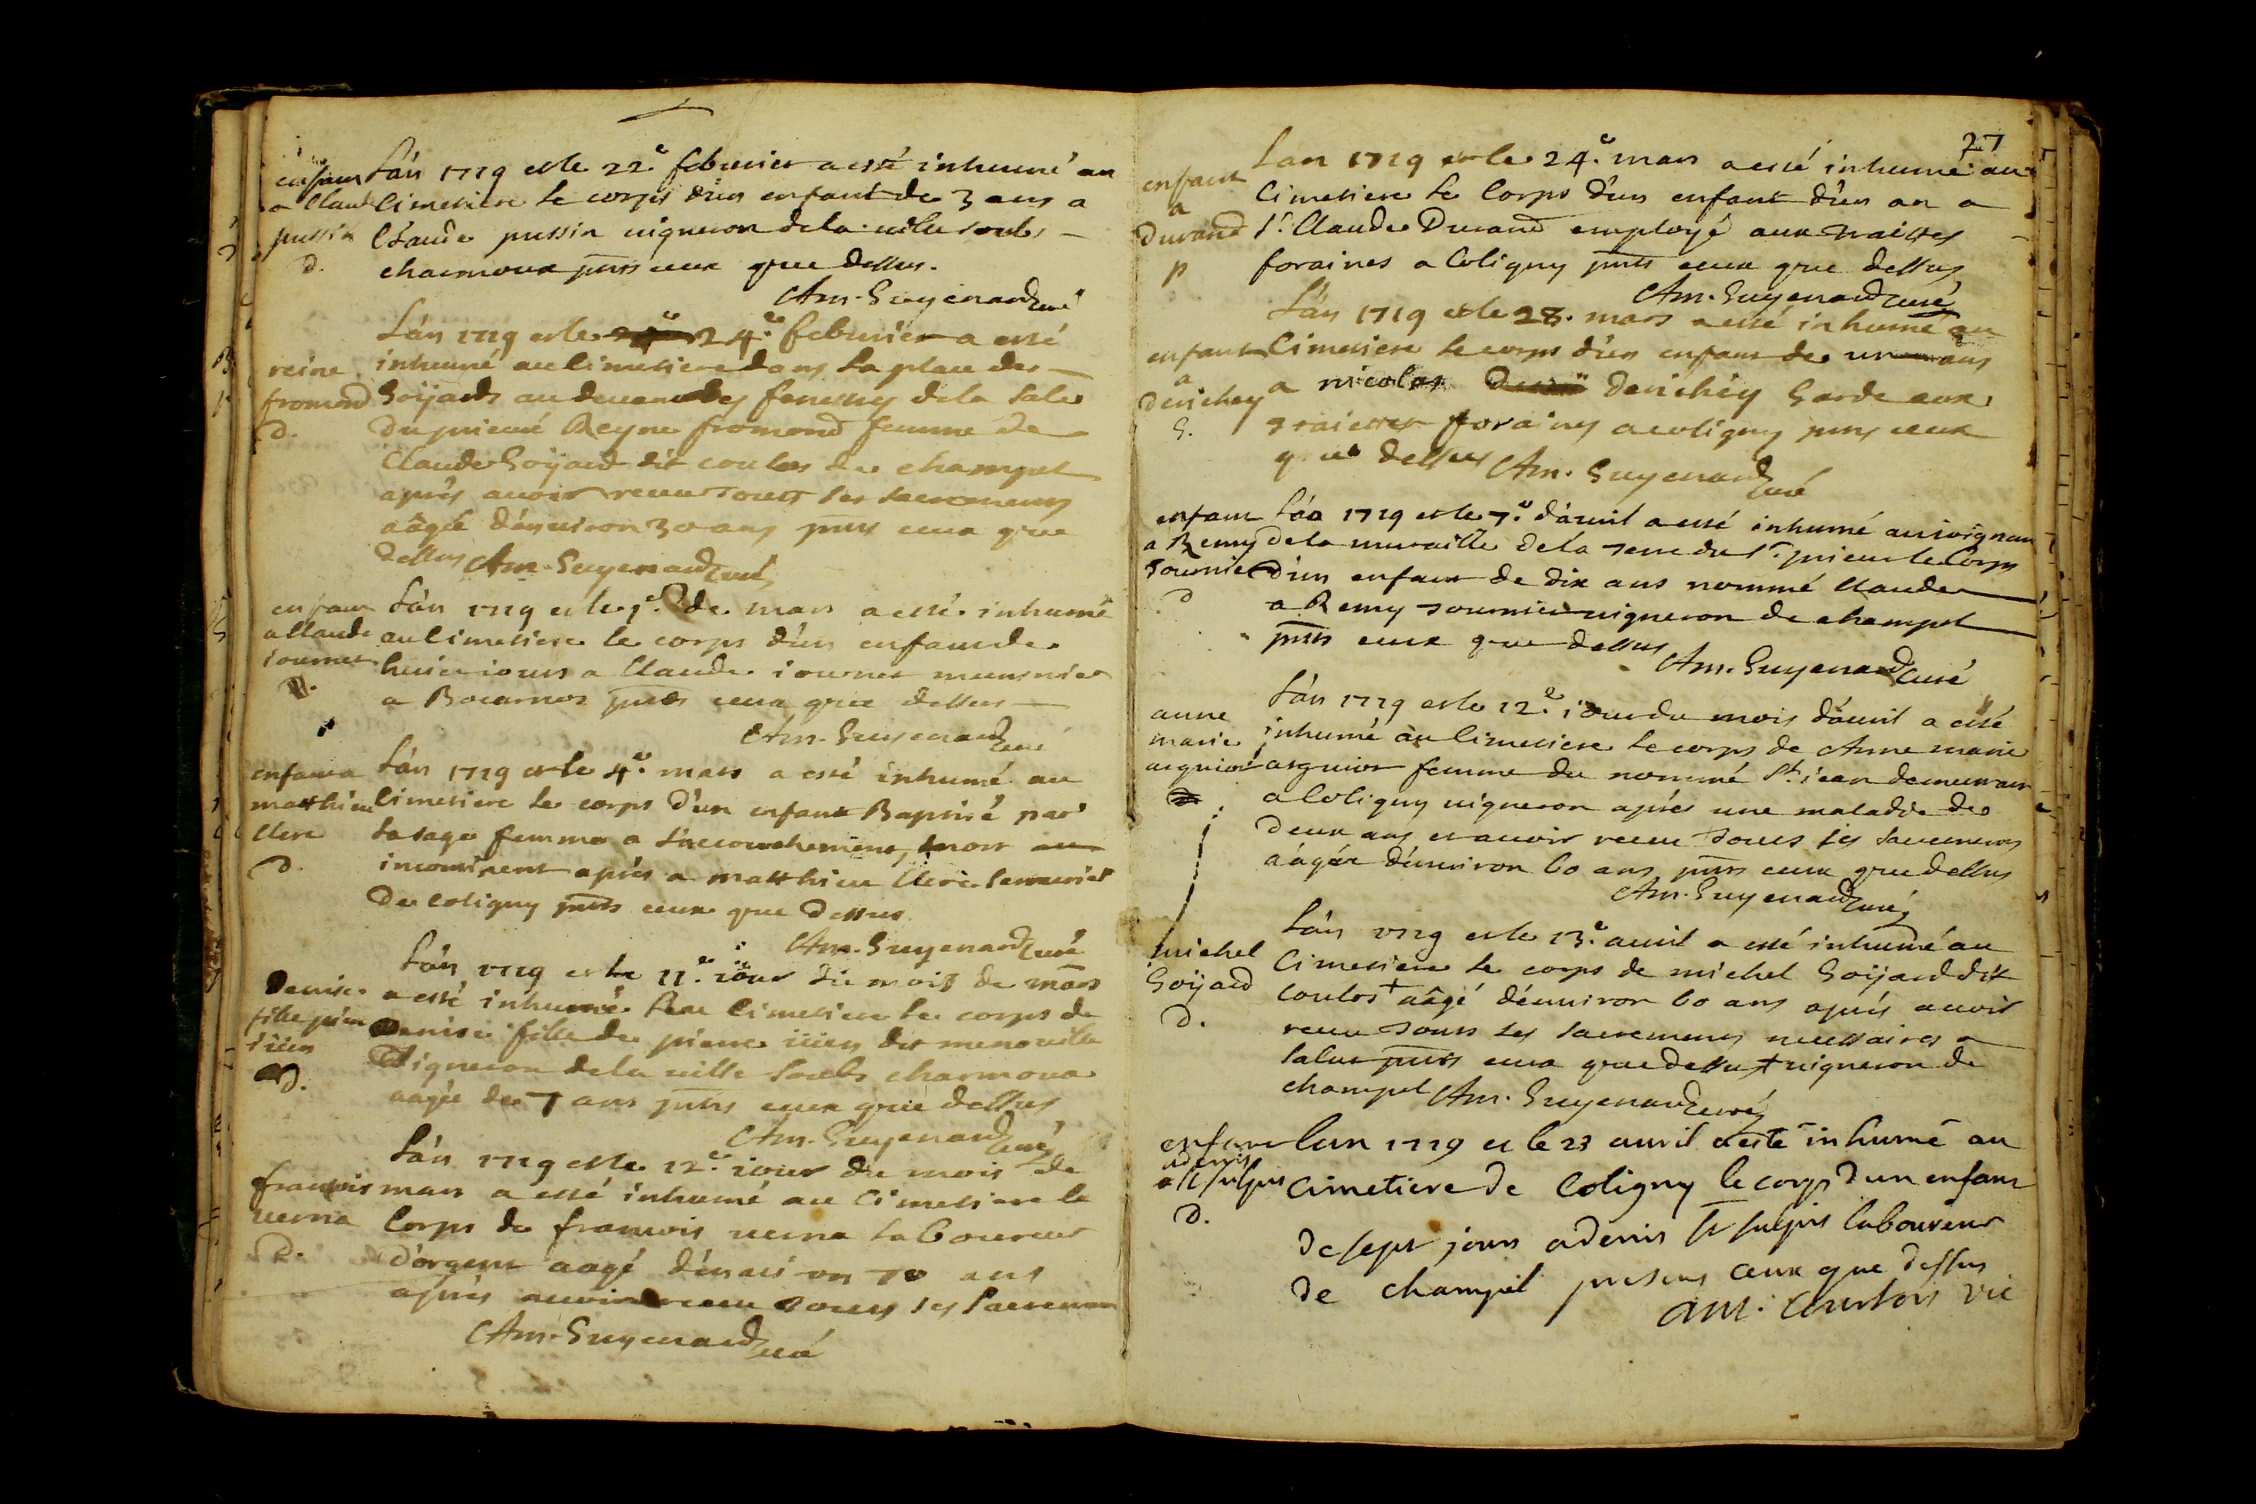 enfant
a Claude
pussin
d.
L'an 1719 et le 22.e febvrier a esté inhumé au
Cimetiere le corps d'un enfant de 3 ans a
Claude pussin vigneron de la ville soubs
charmoux pnts ceux que dessus.
Am. Guyenard curé
reine
fromond
d.
L'an 1719 et le 24.e febvrier a esté
inhumé au Cimetiere dans la place des
Goÿards au devant des fenestres de la sale
du prieuré Reyne fromond femme de
Claude Goÿard dit coulos de champel
après avoir receu touts les sacrements
aâgée d'environ 30 ans pnts ceux que
dessus Am. Guyenard curé
enfant
a Claude
iournet
L'an 1719 et le 1.er de mars a esté inhumé
au Cimetiere le corps d'un enfant de
huict iours a Claude iournet meusnier
a Bocarnoz pnts ceux que dessus
Am. Guyenard curé
enfant a
matthieu
Clerc
d.
L'an 1719 et le 4.e mars a esté inhumé au
Cimetiere le corps d'un enfant Baptisé par
la sage femme a l'accouchement, mort
incontinent après a matthieu Clerc serrurier
de Coligny pnts ceux que dessus
Am. Guyenard curé
Denise
fille pierre
d.
L'an 1719 et le 11.e iour du mois de mars
a esté inhumé au Cimetiere le corps de
Denise fille de pierre dit
vigneron de la ville soubs charmoux
aagée de 7 ans pnts ceux que dessus
Am. Guyenard curé
francois
verna
d.
L'an 1719 et le 12.e iour du mois de
mars a esté inhumé au Cimetiere le
Corps de francois verna laboureur
d'orgent aagé d'environ 70 ans
après avoir receu touts les sacrements
Am. Guyenard curé
27
enfant
a
Durand
p
L'an 1719 et le 24.e mars a esté inhumé au
Cimetiere le Corps d'un enfant d'un an a
Sr. Claude Durand employé aux traittes
foraines a Coligny pnts ceux que dessus
Am. Guyenard curé
enfant
a
Derichey
G.
L'an 1719 et le 28. mars a esté inhumé au
Cimetiere le corps d'un enfant de
a nicolas Derichey Garde aux
traittes foraines a coligny pnts ceux
que dessus Am. Guyenard curé
enfant
a Remy
tournier
d
L'an 1719 et le 7.e d'avril a esté inhumé au ioignant
de la muraille de la terre du Sr. prieur le Corps
d'un enfant de dix ans nommé Claude
a Remy tournier vigneron de champel
pnts ceux que dessus
Am. Guyenard curé
anne
marie
arguior
L'an 1719 et le 12.e iour du mois d'avril a esté
inhumé au Cimetiere le corps de Anne marie
arguior femme du nommé St. iean demeurant
a Coligny vigneron après une maladie de
deux ans et avoir receu touts les sacrements
aâgée d'environ 60 ans pnts ceux que dessus
Am. Guyenard curé
michel
Goÿard
d.
L'an 1719 et le 13.e avril a esté inhumé au
Cimetiere le corps de michel Goÿard dit
Coulos + aâgé d'environ 60 ans après avoir
receu touts les sacrements necessaires a
salut pnts ceux que dessus + vigneron de
champel Am. Guyenard curé
enfant
a denis
St sulpis
D.
Lan 1719 et le 23 avril a esté inhumé au
Cimetiere de Coligny le corps d un enfant
de sept jours a denis St sulpis laboureur
de champel presens ceux que dessus
Ant. Courtois vic